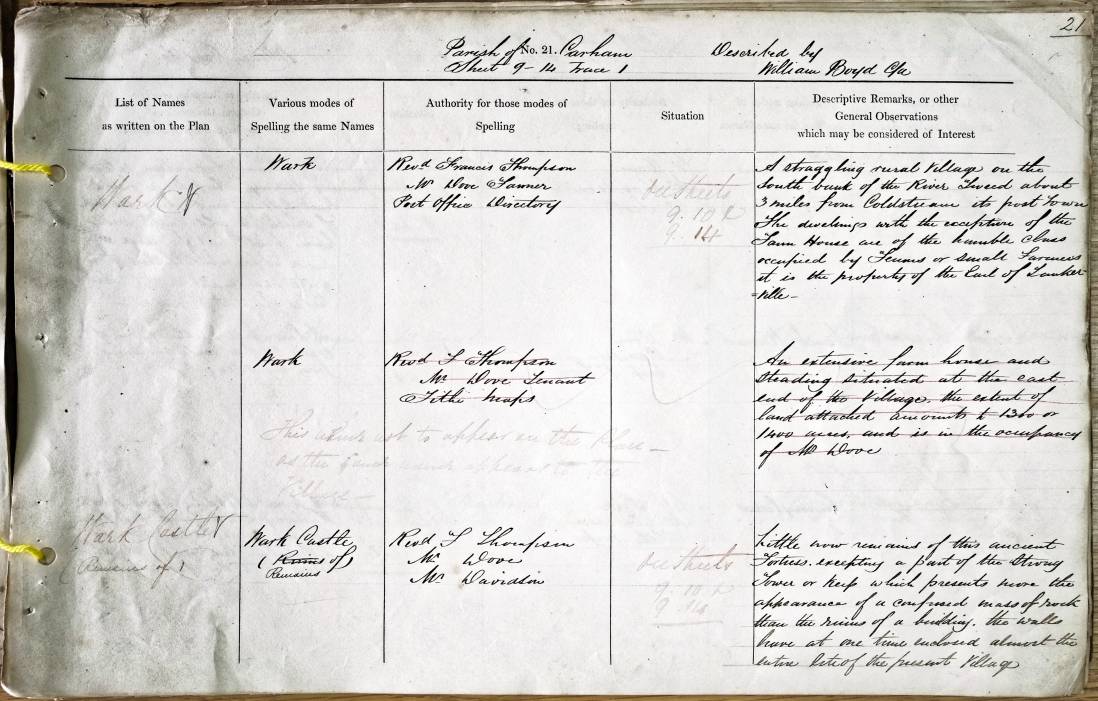 21
Parish of No. 21. Carham Described by
Sheet 9-14 Trace 1 William Boyd C/a
List of Names
as written on the Plan
Various modes of
Spelling the same Names
Authority for those modes of
Spelling
Situation
Descriptive Remarks, or other
General Observations
which may be considered of Interest
Wark
Wark
Revd Francis Thompson
Mr Dove Farmer
Post Office Directory
See Sheets
9. 10 &
9. 14
A straggling rural Village on the
South bank of the River Tweed about
3 miles from Coldstream its post town
The dwellings with the exception of the
Farm House are of the humble class
occupied by or small Farmers
it is the property of the Earl of Tanker
=ville-
Wark
Revd F Thompson
Mr Dove Tenant
Tithe Maps
An extensive farm house and
Steading situated at the east
end of the Village, the extent of
land attached amounts to 1300 or
1400 acres, and is in the occupancy
of Mr Dove
This name not to appear on the Plan -
as the same name appears to the
Village -
Wark Castle
(Remains of)
Wark Castle
(Ruins of)
Remains
Revd F Thompson
Mr Dove
Mr Davidson
See Sheets
9. 10 &
9. 14
Little now remains of this ancient
Fortress. excepting a part of the Strong
Tower or Keep which presents more the
appearance of a confused mass of rock
than the ruins of a building. the walls
have at one time enclosed almost the
entire Site of the present Village